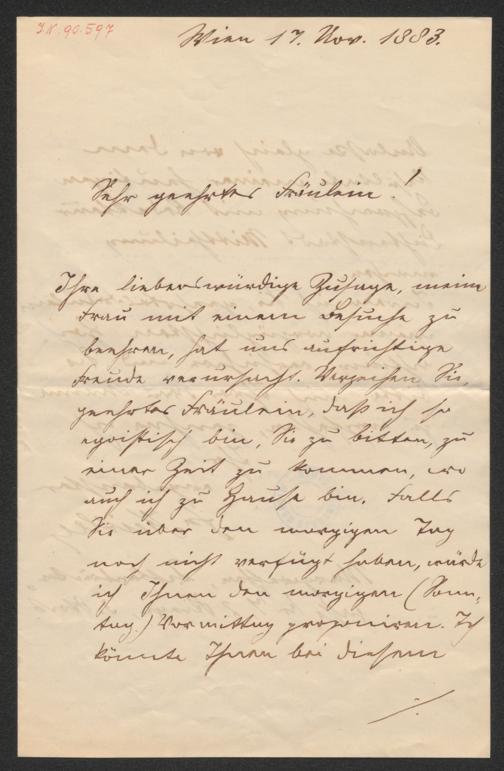 I.N. 90.597
Wien 17. Nov. 1883.
Sehr geehrtes Fräulein!
Ihre liebenswürdige Zusage, meine
Frau mit einem Besuche zu
beehren, hat uns aufrichtige
Freude verursacht. Verzeihen Sie,
geehrtes Fräulein, daß ich so
egoistisch bin, Sie zu bitten, zu
einer Zeit zu kommen, wo
auch ich zu Hause bin. Falls
Sie über den morgigen Tag
noch nicht verfügt haben, würde
ich Ihnen den morgigen (Sonn-
tag.) Vormittag proponiren. Ich
könnte Ihnen bei diesem
./.